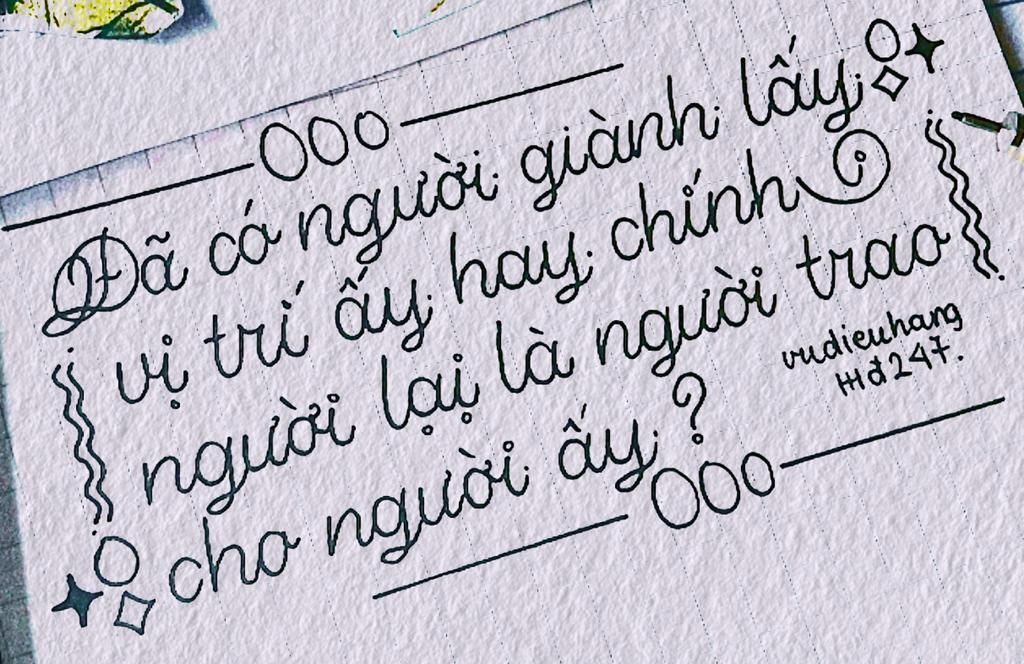 Đã có người giành lấy
vị trí ấy hay chính
người lại là người trao
cho người ấy?
vudieuhang
Hđ247.